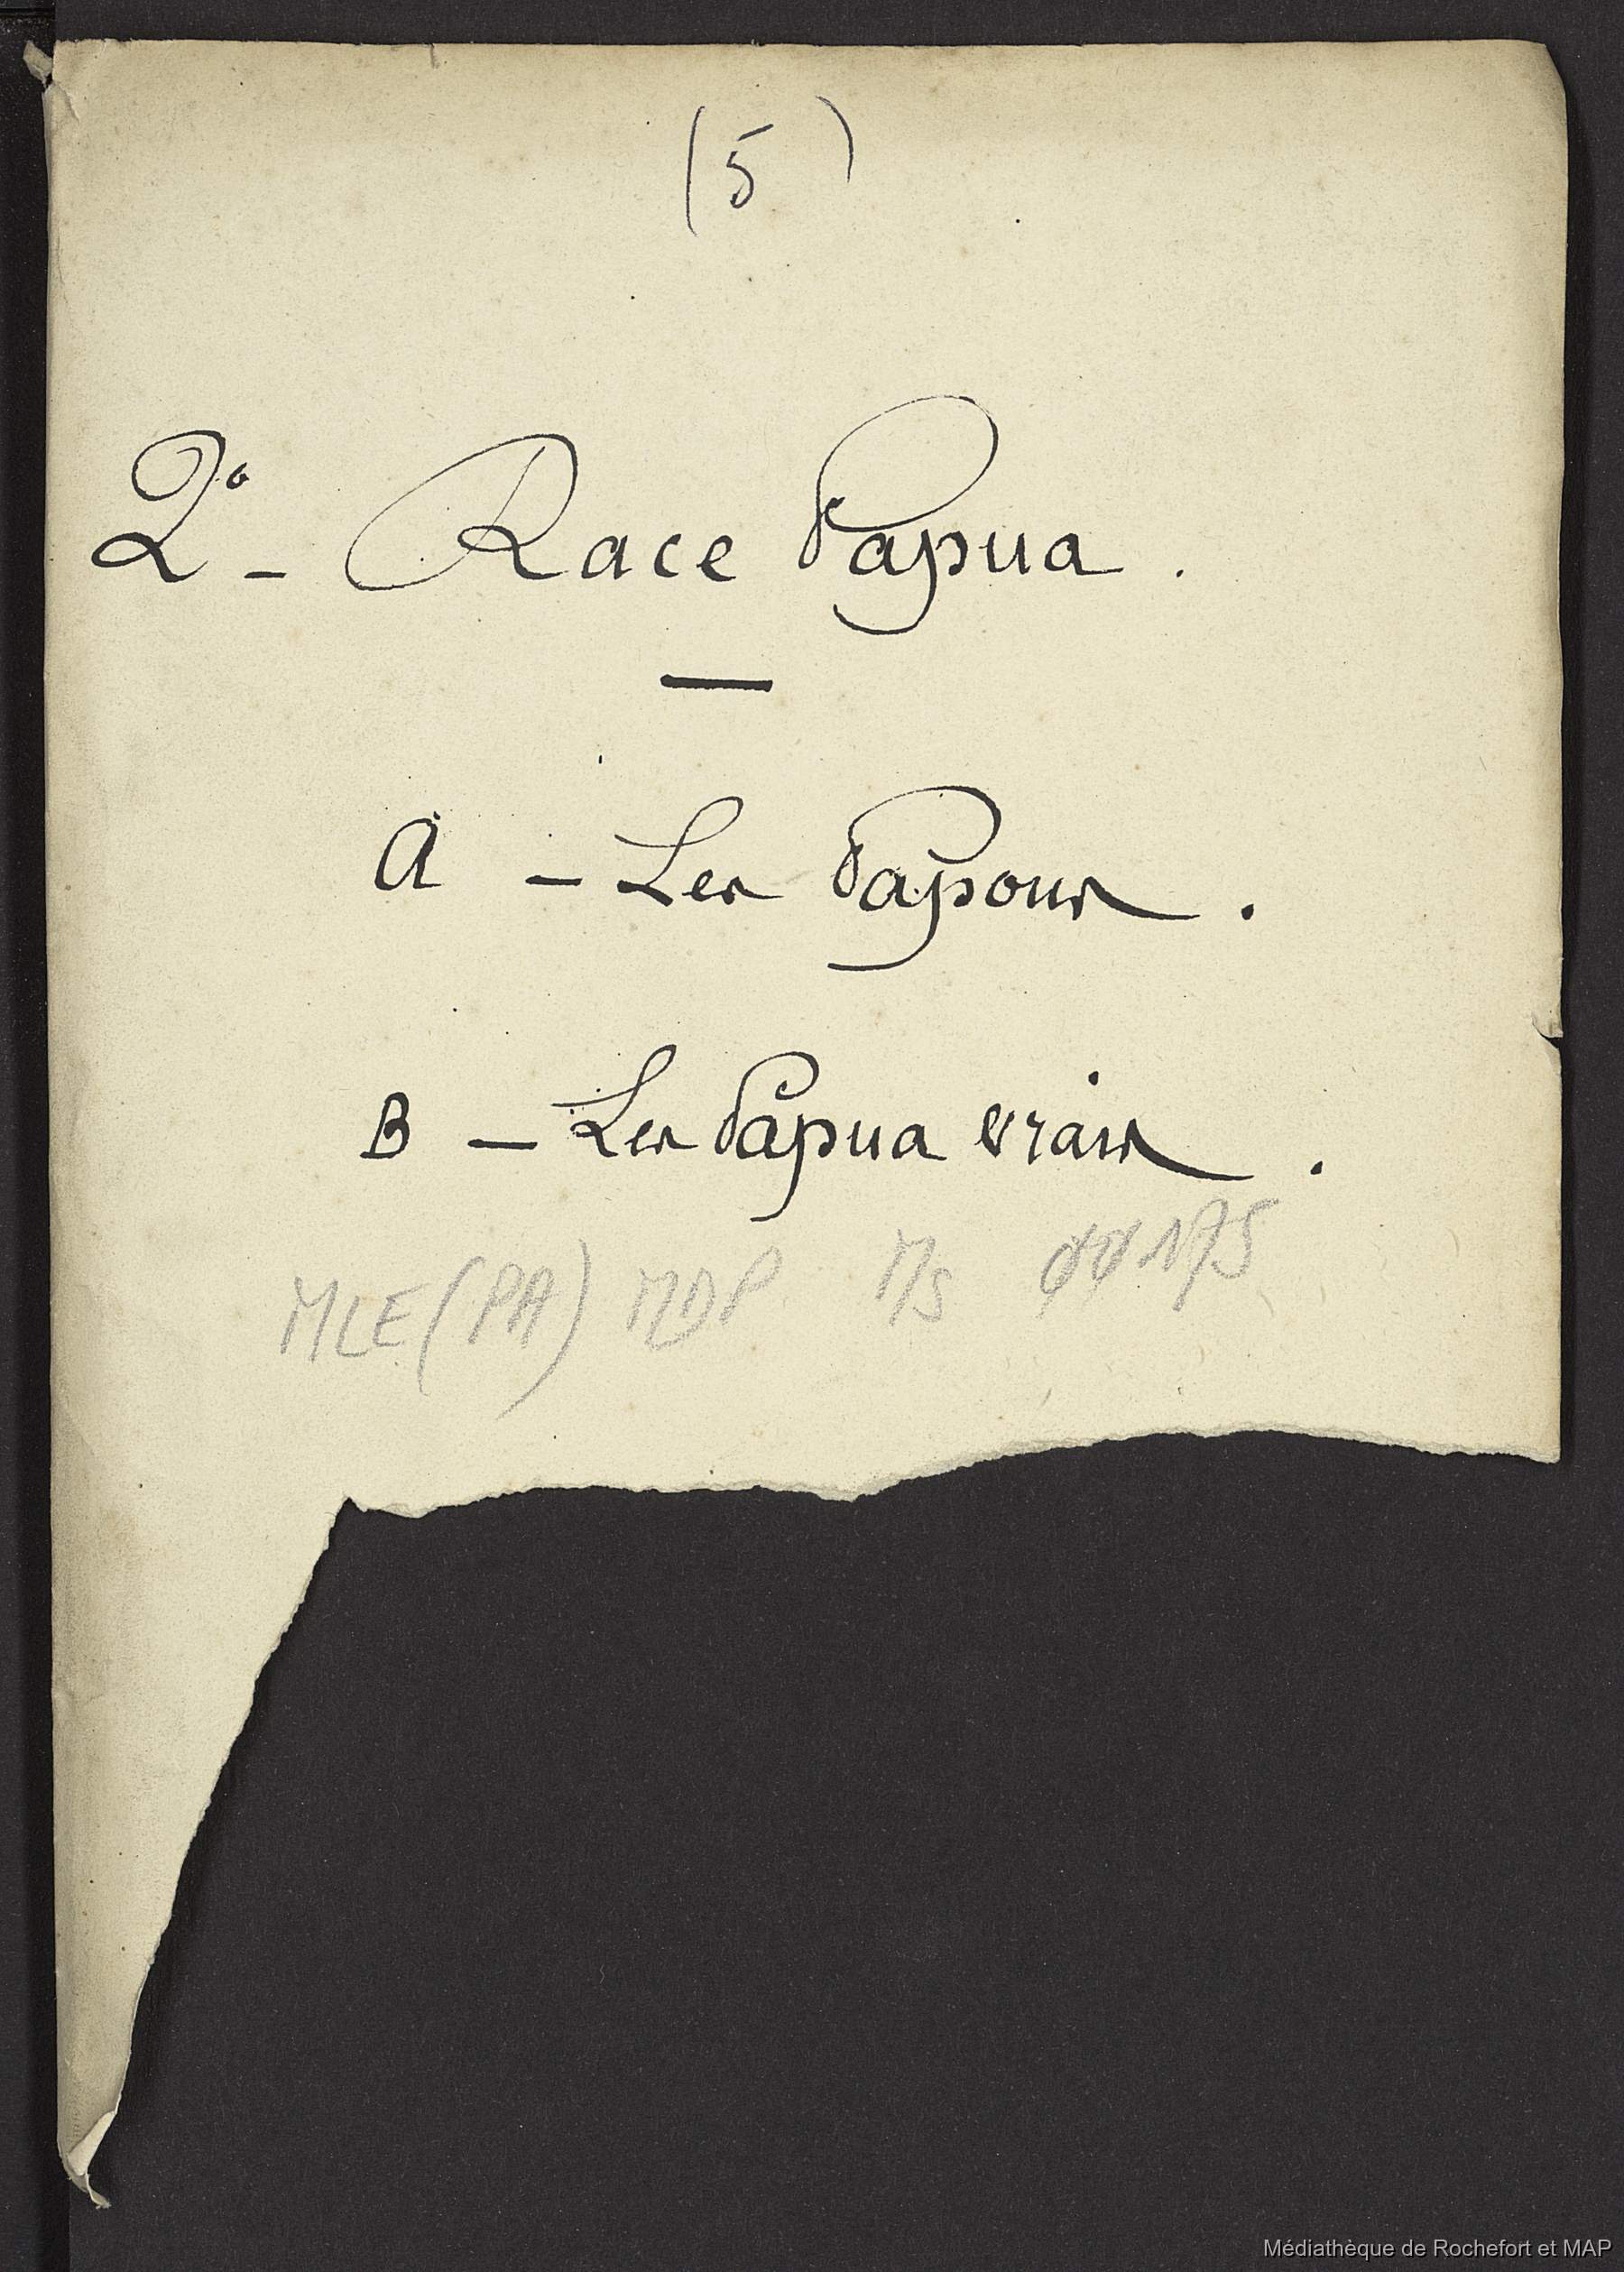 (5)
2° - Race Papua.
A - Les Papous.
B - Les Papua vrais.
MLE (PA) MDP Ms 00175
Médiathèque de Rochefort et MAP